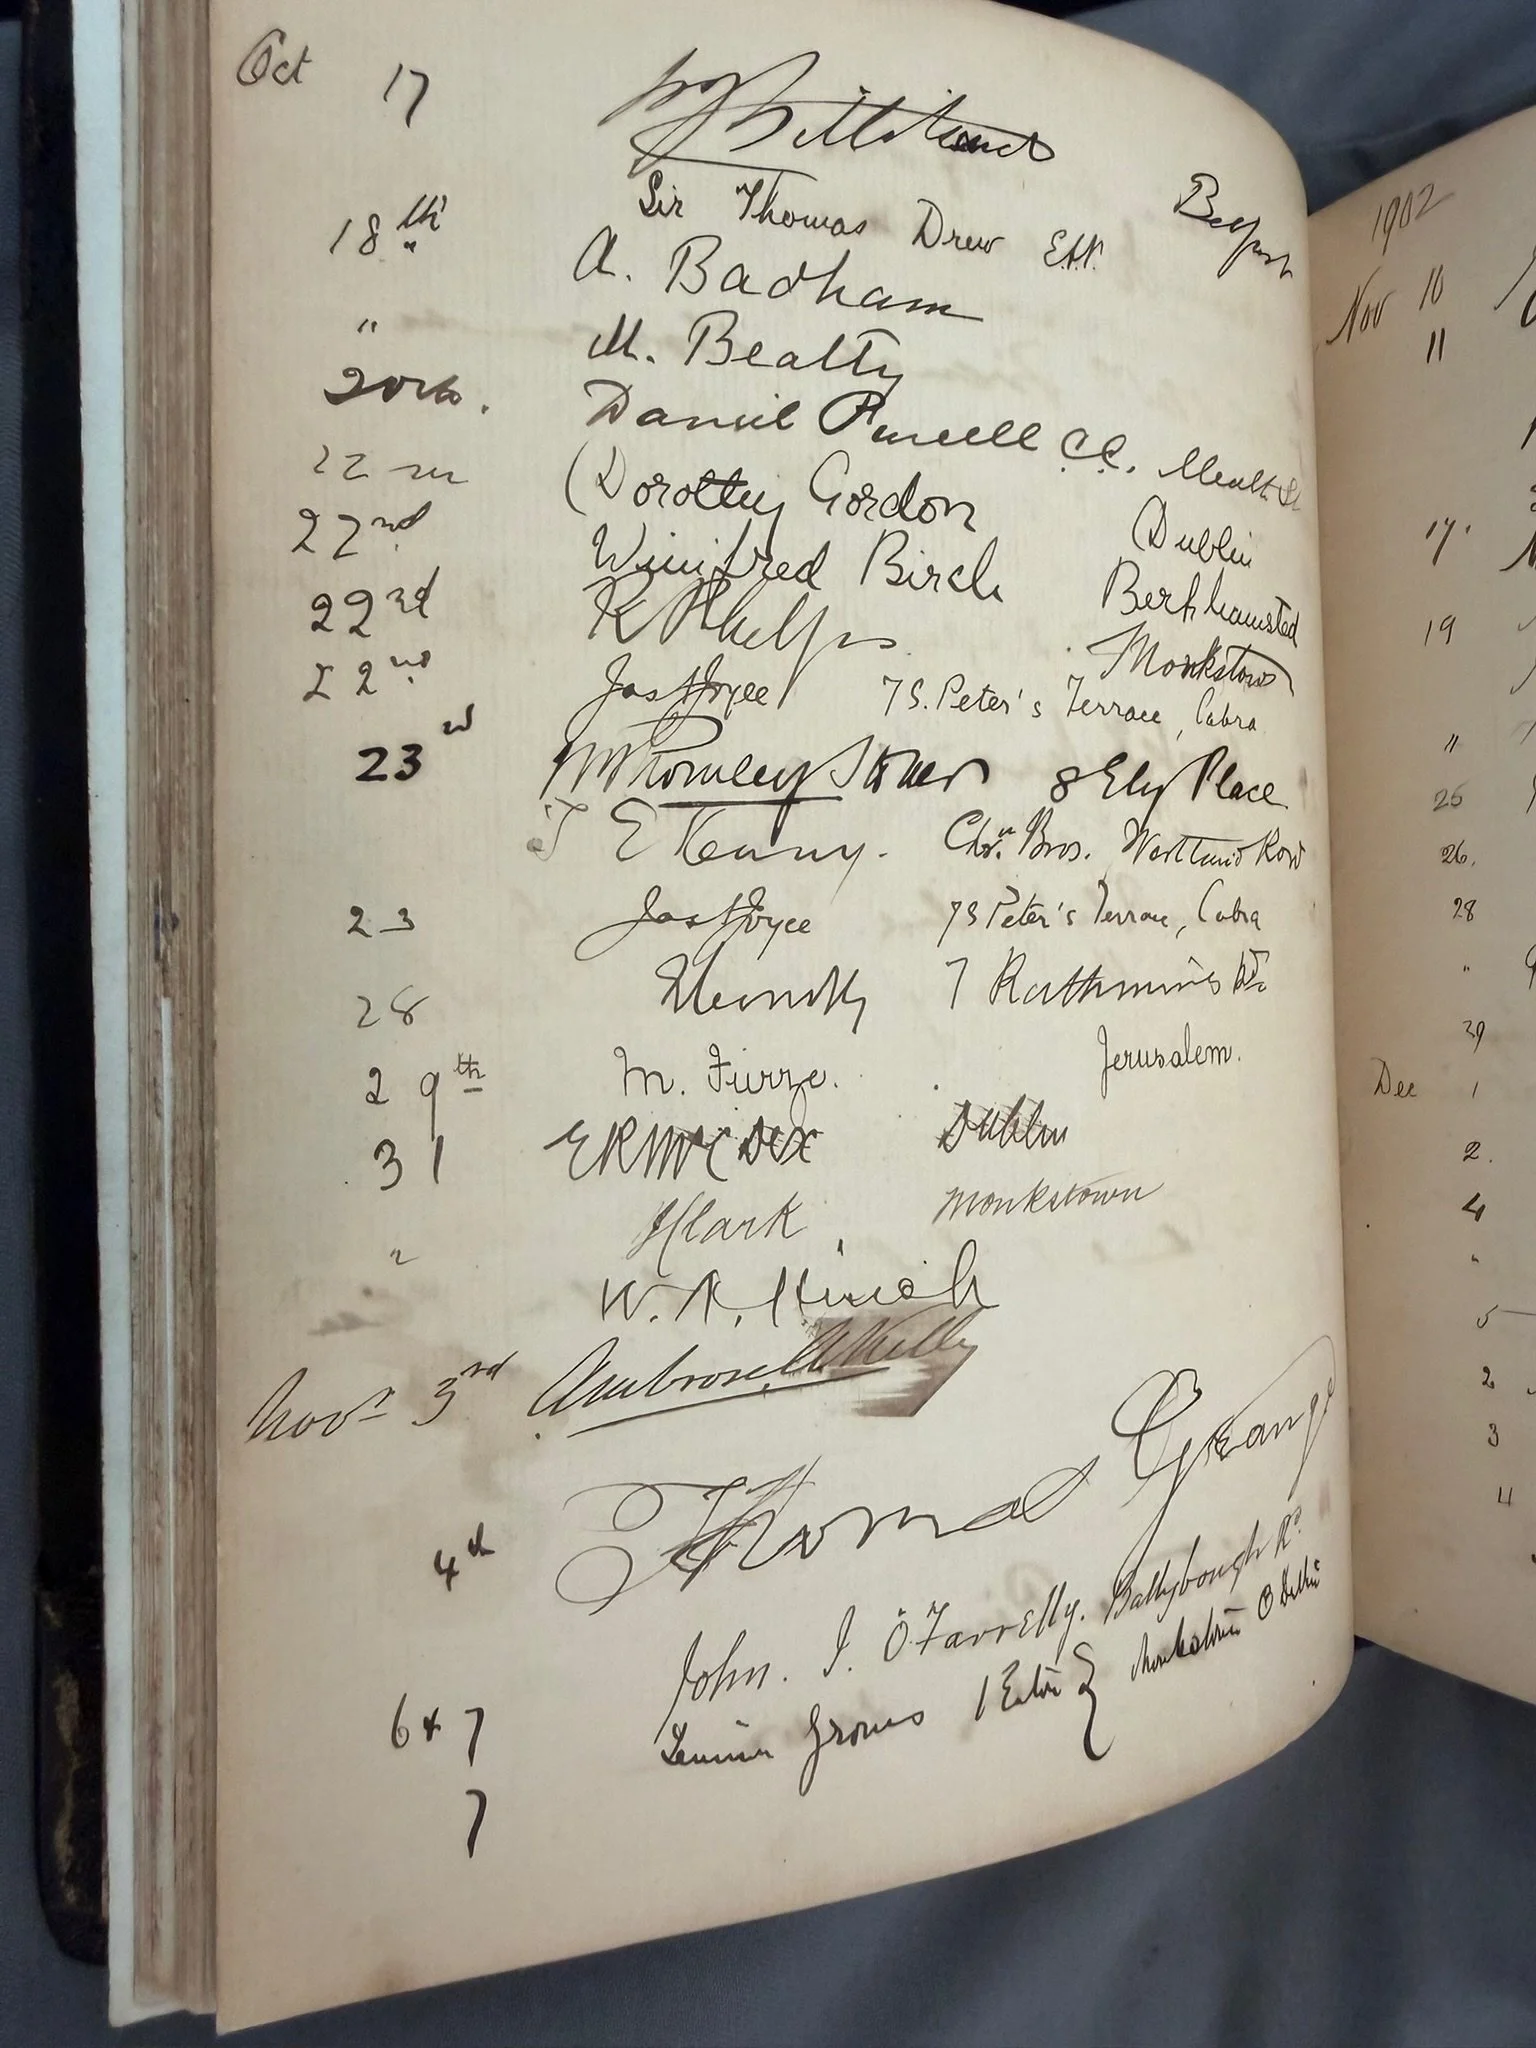 Oct 17
Belfast
18th Sir Thomas Drew
A. Badham
" M. Beatty
20th. Daniel Purcell C.C. Meath St
22nd (Dorothy Gordon (Dublin
22nd Winifred Birch Berkhamsted
22nd R Phelps Monkstown
22nd Jas A Joyce 7 S. Peter's Terrace, Cabra
23rd 8 Ely Place
T E Kenny. Chrn. Bros. Westland Row
23 Jas A Joyce 7 S Peter's Terrace, Cabra
28 7 Rathmines
29th M. Furze. Jerusalem.
31 E R McC Dix Dublin
Clark, Monkstown
" W. A. Hinch
Novr 3rd Ambrose Kelly
4th Thomas Grange
John. J. O'Farrelly. Ballybough Rd.
6 & 7 Groves 1 Eaton Monkstown Co Dublin
7
1902
Nov 10
11
17.
19
"
25
26.
28
"
29
Dec 1
2.
4
"
5
2
3
4